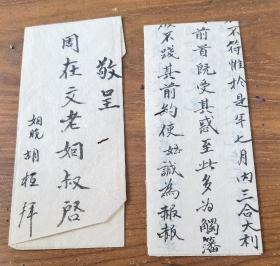 敬呈
周在文老姻叔啓
姻晚胡桓拜
不符惟於是年七月內三合大利
前首既受其惑至此多為觸藩
不踐其前約使姑誠為報